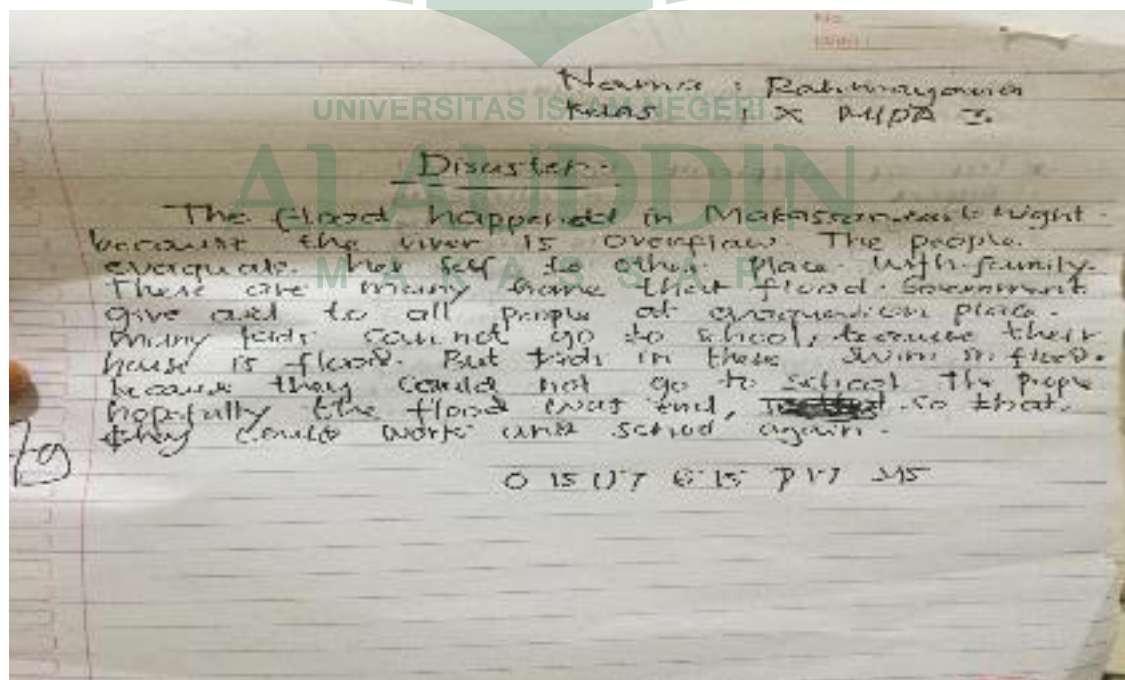 Nama : Rahmayania
Kelas : X MIPA I
UNIVERSITAS ISLAM NEGERI
ALAUDDIN
MAKASSAR
Disaster.
The flood happened in Makassar last Night.
because the river is overflow. The people.
evaquate. her self to other place with family.
There are many home that flood. Government
give aid to all people at evaquation place.
many kids can not go to school, because their
house is flood. But kids in there swim in flood.
because they could not go to school the people
hopefully the flood was end, so that.
they could work and school again.